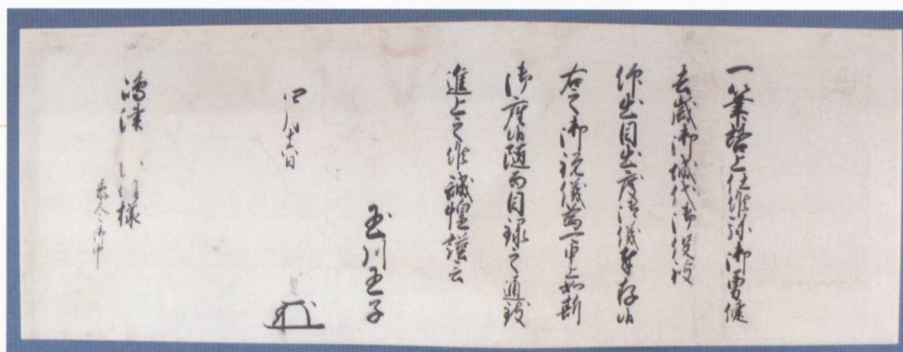 一筆啓上仕候弥御勇健
去歳御城代御役被
仰出目出度御儀奉存候
右之御祝儀為可申上如斯
御座候随而目録之通致
進上之候誠惶謹言
玉川王子
四月十六日
様